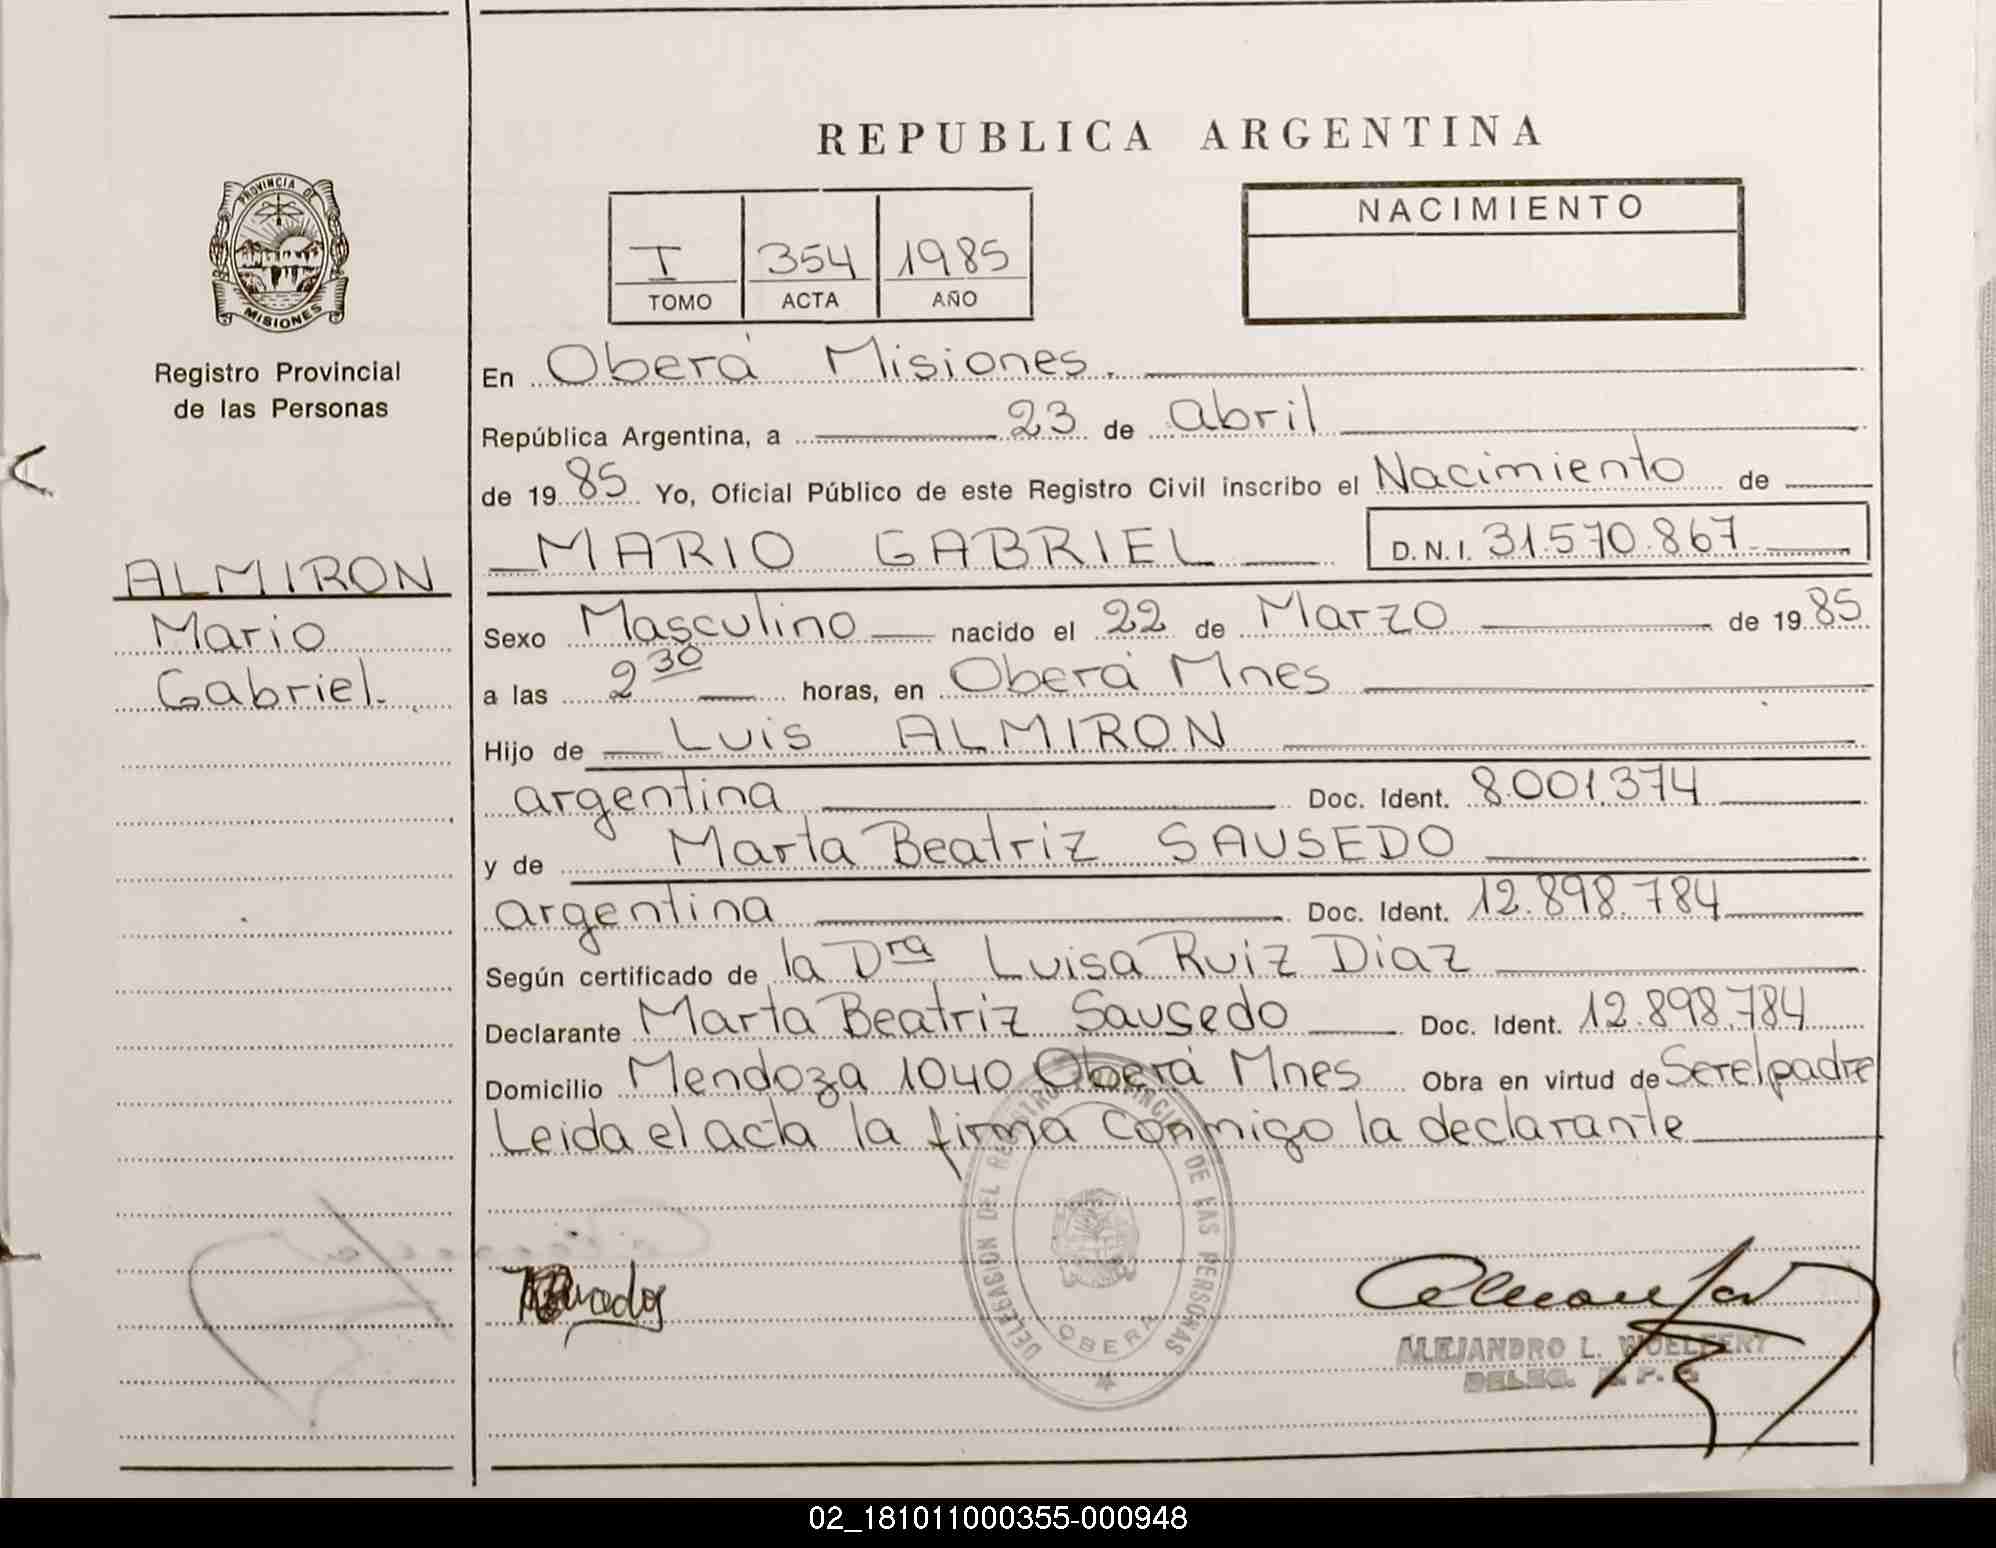 REPUBLICA ARGENTINA
PROVINCIA DE
MISIONES
Registro Provincial
de las Personas
I 354 1985
TOMO ACTA AÑO
NACIMIENTO
En Oberá Misiones.
República Argentina, a 23 de abril
de 1985 Yo, Oficial Público de este Registro Civil inscribo el Nacimiento de
MARIO GABRIEL D.N.I. 31.570.867
ALMIRON
Mario
Gabriel.
Sexo Masculino nacido el 22 de Marzo de 1985
a las 2 30 horas, en Oberá Mnes
Hijo de Luis ALMIRON
argentina Doc. Ident. 8.001.374
y de Marta Beatriz SAUSEDO
argentina Doc. Ident. 12.898.784
Según certificado de la Dra Luisa Ruiz Diaz
Declarante Marta Beatriz Sausedo Doc. Ident. 12.898.784
Domicilio Mendoza 1040 Oberá Mnes Obra en virtud de Ser el padre
Leida el acta la firma conmigo la declarante
DELEGASION DEL REGISTRO PROVINCIAL DE LAS PERSONAS
OBERA
ALEJANDRO L. WOELFERT
DELEG. R. P. P.
02_181011000355-000948